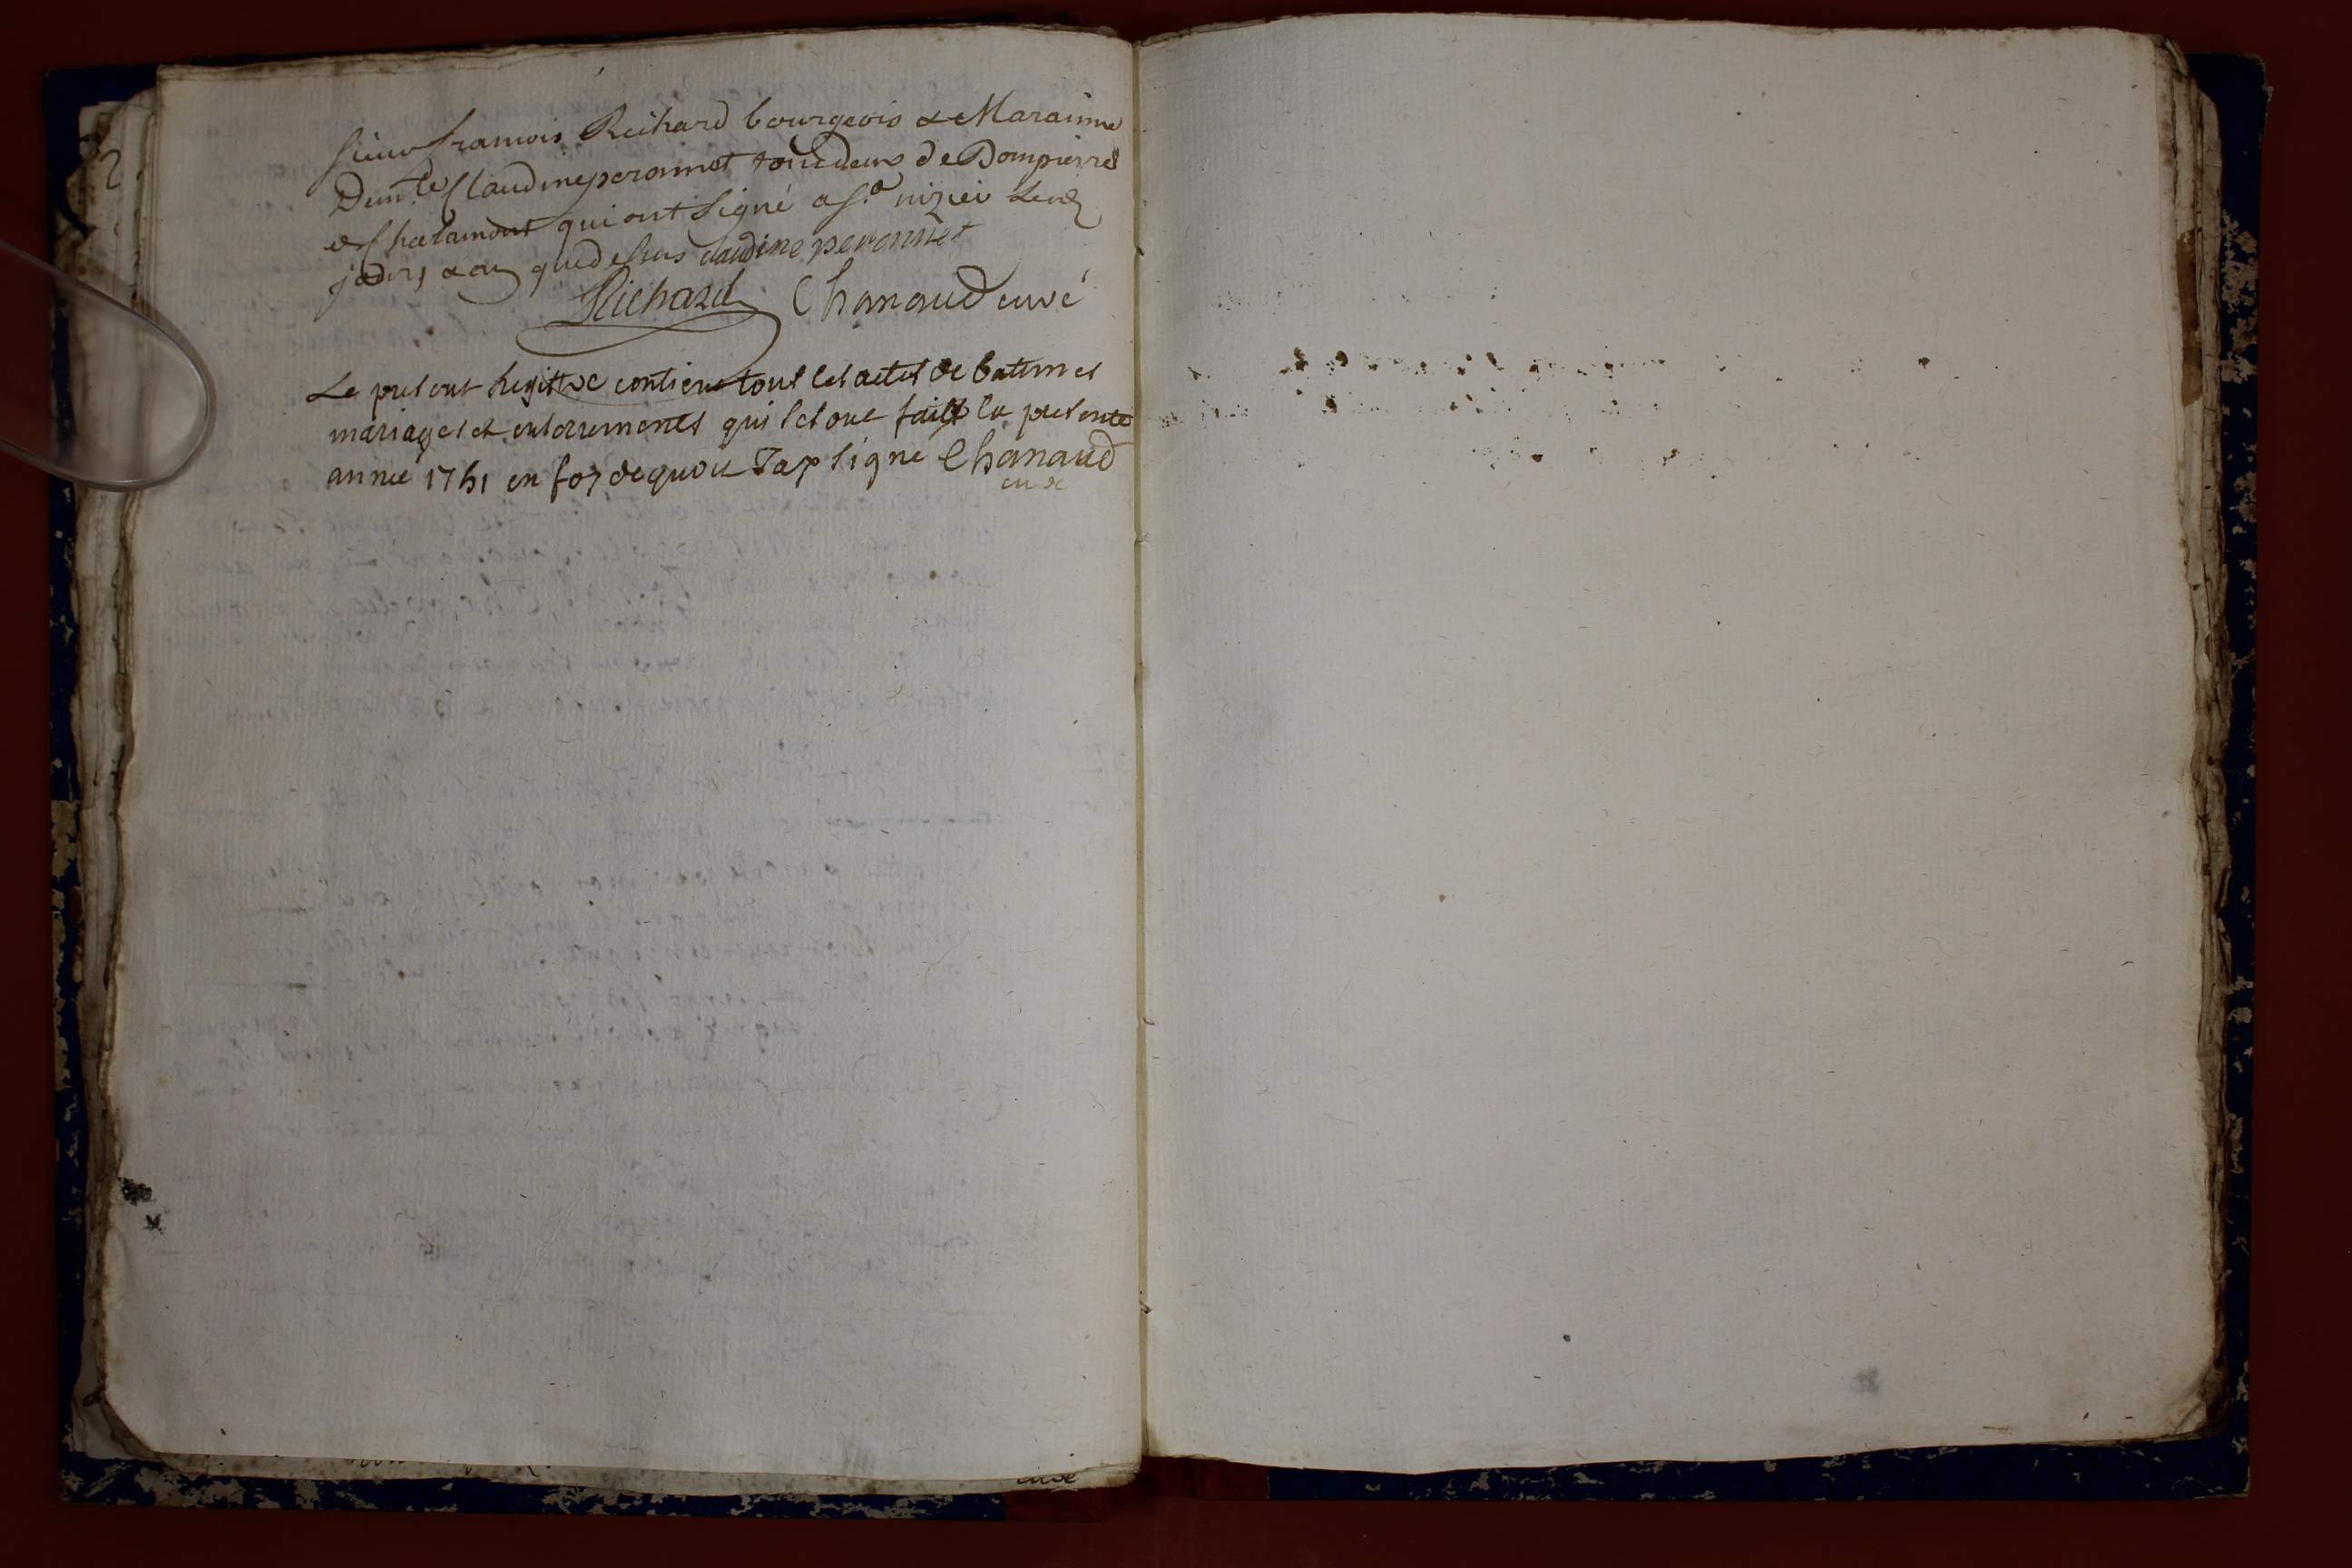 sieur francois Reihard bourgeois & Maraine
Dem.le Claudine peronnet tous deux de Dompierre
de Chalamont qui ont signé a st nizier les
jours & an que dessus claudine peronnet
Richard Chanaud curé
Le present Registre contient tous les actes de batemes
mariages et enterrements qui se sont faits la presente
année 1751 en foy de quoy Jay signe Chanaud
curé
curé